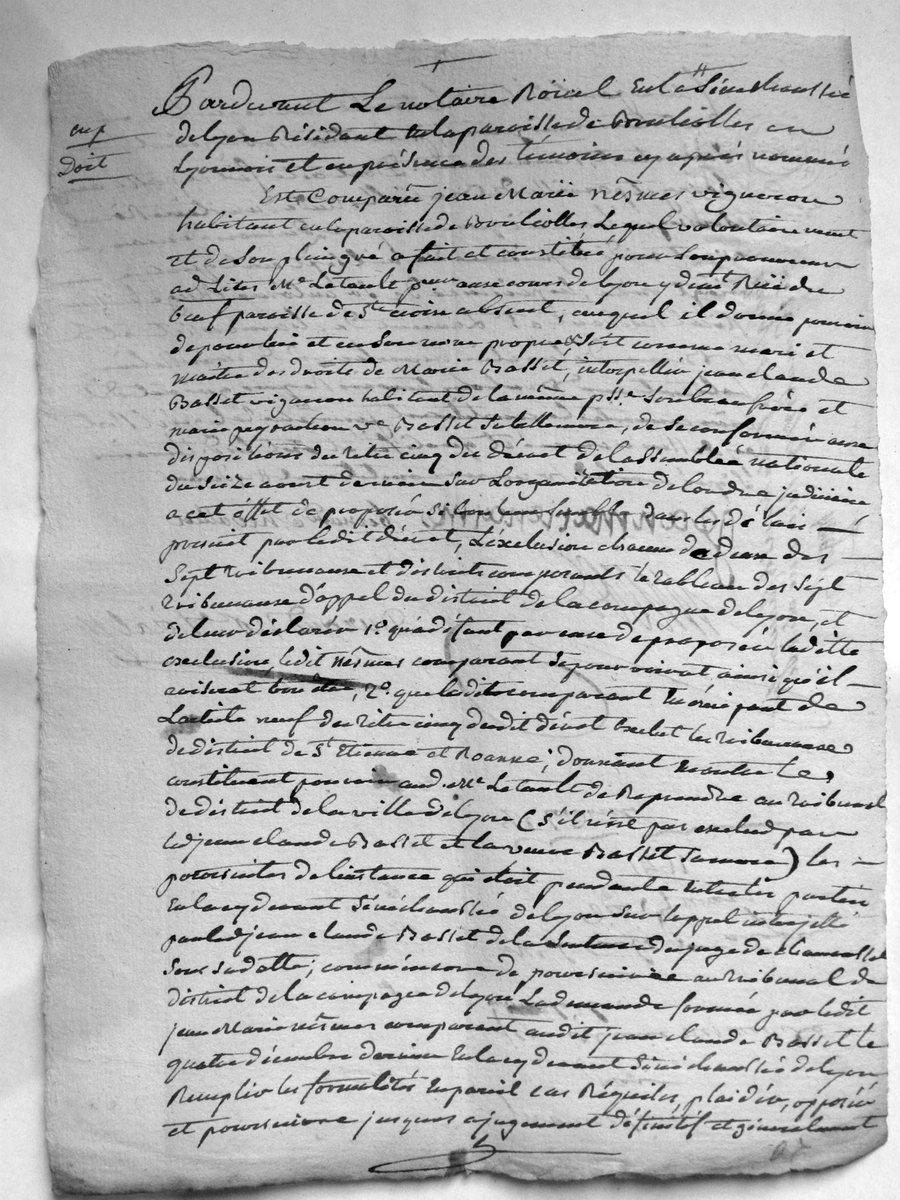 Pardevant Le notaire Roïal En la Sénéchaussée
exp
de Lyon Résidant en la paroisse de en
Doit
Lyonnois et en présence des témoins cy après nommés
Est Comparu jean Marie Nesmes vigneron
habitant en la paroisse de Lequel volontairement
et de Son plein gré a fait et constitué pour Son procureur
ad Lites Me. Letault aux cours de Lyon y demt. Rüe du
bœuf paroisse de Ste. croix absent, auquel il donne pouvoir
de pour lui et en Son nom propre Soit comme mari et
maitre des droits de Marie Basset, interpeller jean claude
Basset vigneron habitant de la même psse. Son beau frère et
marie ve. Basset Sa belle mere, de Se conformer aux
dispositions du titre cinq du décret de l'assemblée nationale
du Seize aoust dernier Sur L'organisation de l'ordre judiciaire
a cet éffet de proposer Si bon leur Semble dans les délais
prescrit par le dit décret, L'éxclusion chacun de deux des
Sept tribunaux de districts composants le tableau des Sept
tribunaux d'appel du district de la campagne de Lyon, et
de leur déclarer 1o. qu'a défaut par eux de proposer la ditte
exclusion, ledit Nesmes comparant Se pourvoirat ainsi qu'il
aviserat bon être, 2o. que le dit comparant
L'article neuf du titre cinq dudit décret Exclut les tribunaux
de district de St. Etienne et Roanne; donnant le
constituant pouvoir aud. Me. Letault de Reprendre au tribunal
de district de la ville de Lyon (S'il n'est pas exclud par
led jean claude Basset et la veuve Basset Sa mere) les
poursuites de l'instance qui étoit pendante Entre les parties
En la cy devant Sénéchaussée de Lyon Sur l'appel interjetté
par led jean claude Basset de la Sentence du juge de
Sous Sa datte; comme encore de poursuivre au tribunal de
district de la campagne de Lyon La demande formée par ledit
jean Marie Nesmes comparant audit jean claude Basset le
quatre décembre dernier En la cy devant Sénéchaussée de Lyon
Remplir les formalités En pareil cas Requises, plaider, opposer
et poursuivre jusques a jugement définitif et généralement